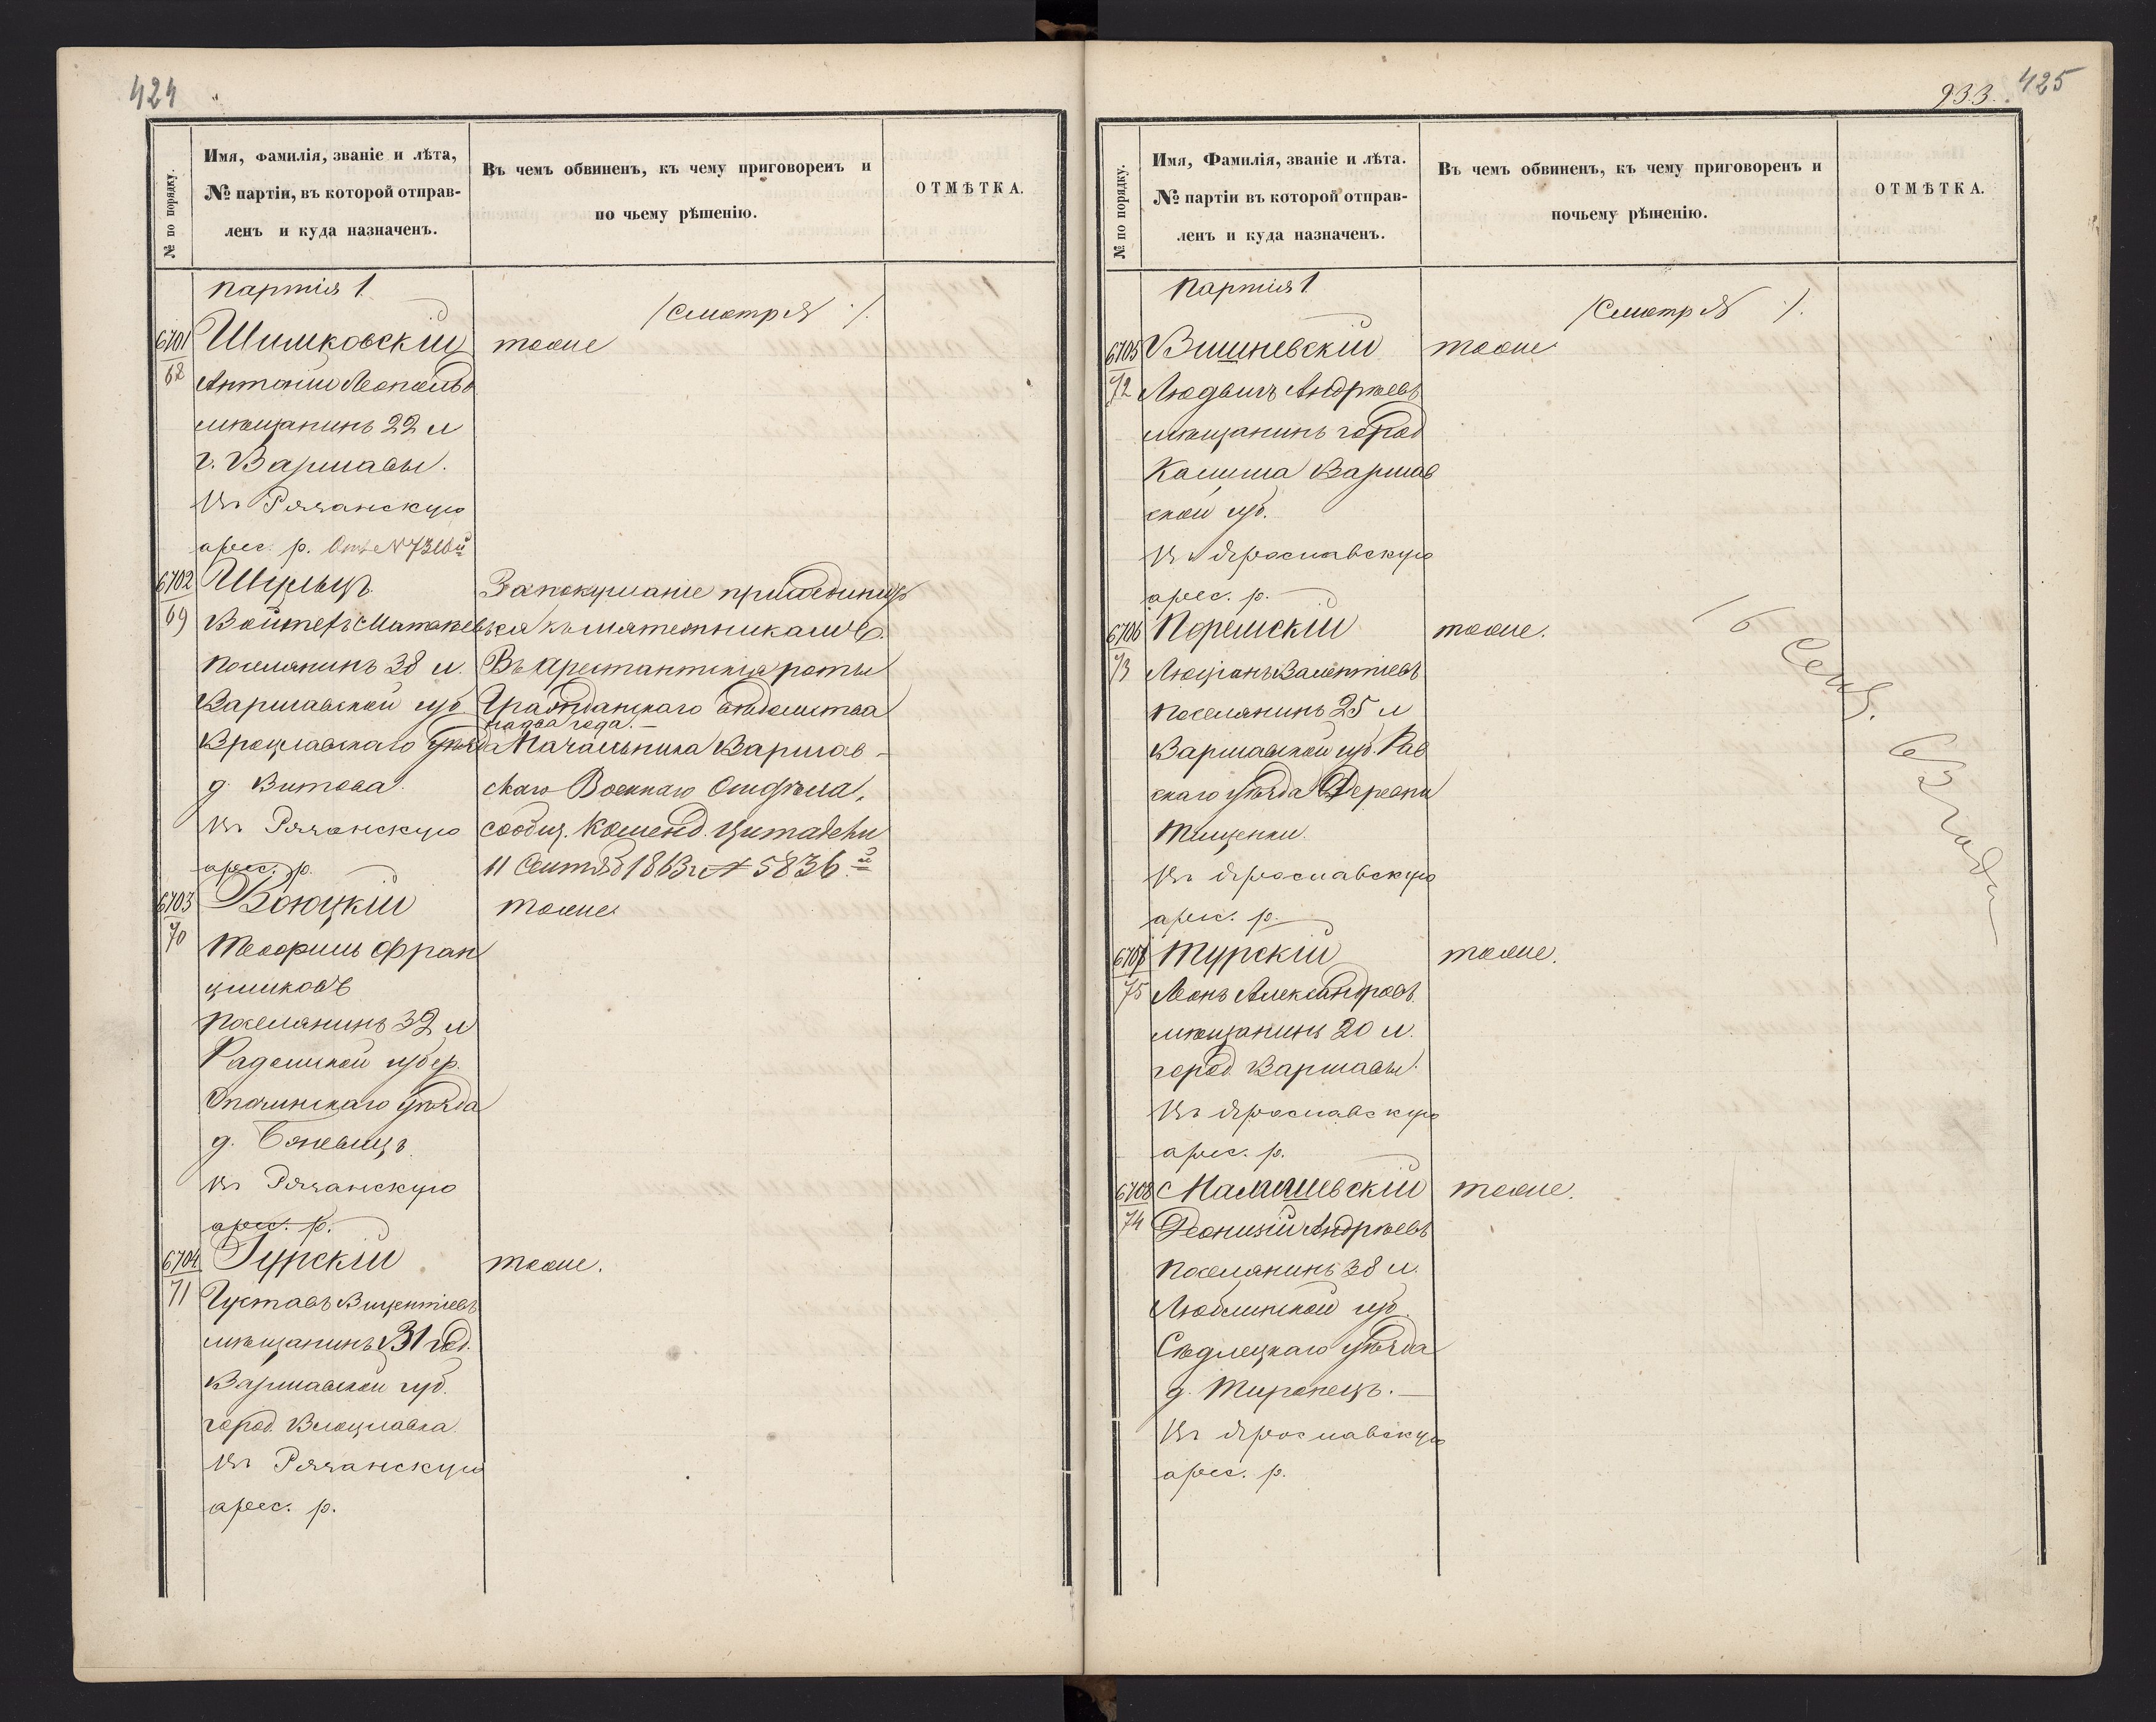 424
№ по порядку.
Имя, Фамилія, званіе и лѣта,
№ партіи, въ которой отправ-
ленъ и куда назначенъ.
Въ чемъ обвиненъ, къ чему приговоренъ и
по чьему рѣшенію.
ОТМѢТКА.
Партія 1.
/Смотр №  ./.
6701
68
Шимковскій
тоже
Антоній Леопольд
мѣщанинъ 22 л
г. Варшавы.
Въ Рязанскую
арес. р.
6702
69
Войтехъ
За покушаніе присоединить
ся къ мятежникамъ.
Поселянинъ 38 л.
Въ Арестантскія роты
Варшавской губ.
Гражданскаго вѣдомства
на два года.
Вроцлавскаго уѣзда
Начальника Варшав-
д. Витова.
скаго Военнаго Отдѣла,
Въ Рязанскую
сообщ. Коменд. Цитадели
арес. р.
11 Сентяб 1863 г № 5836.
6703
70
тоже
Теофиль Фран
цишковъ
Поселянинъ 32 л
Радомской губер.
Опочинскаго уѣзда
Въ Рязанскую
арес. р.
6704
71
Гурскій
тоже.
Густавъ Вицентіевъ
мѣщанинъ 31 год.
Варшавской губ.
город. Влоцлавка.
Въ Рязанскую
арес. р.
933. 425
№ по порядку.
Имя, Фамилія, званіе и лѣта.
№ партіи въ которой отправ-
ленъ и куда назначенъ.
Въ чемъ обвиненъ, къ чему приговоренъ и
почьему рѣшенію.
ОТМѢТКА.
Партія 1.
/Смотр №  /.
6705
72
Вишневскій
тоже
Людвигъ Андрѣевъ
мѣщанинъ город
Калиша Варшав
ской губ.
Въ Ярославскую
арес. р.
6706
73
Поремскій
тоже.
Люціонъ Валентіевъ
Поселянинъ 25 л
Варшавской губ. Рав
скаго уѣзда Деревни
Въ Ярославскую
арес. р.
16 Сент. 63 года
6707
75
Турскій
тоже.
Леонъ Александровъ.
мѣщанинъ 20 л.
город. Варшавы.
Въ Ярославскую
арес. р.
6708
74
Малишевскій
тоже.
Деонизій Андрѣевъ
Поселянинъ 38 л.
Люблинской губ.
Сѣдлецкаго уѣзда
д. Миронецъ.
Въ Ярославскую
арес. р.